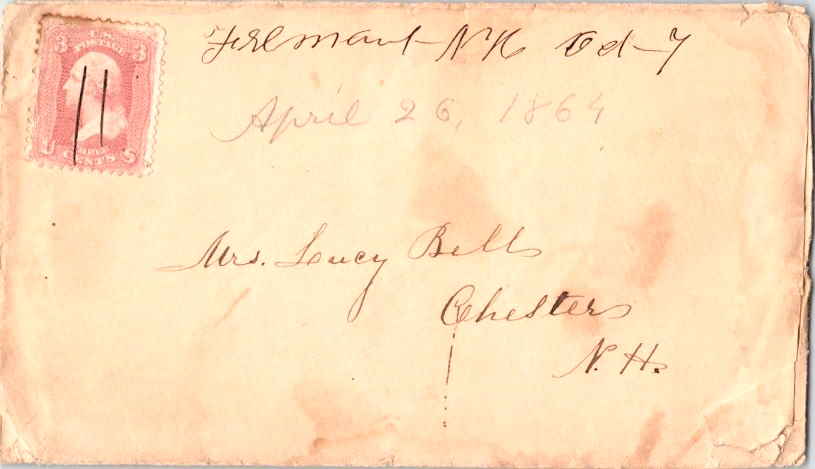 3 U.S. 3
POSTAGE
U THREE S
CENTS
Fremont N H
April 26, 1864
Mrs. Loucy Bell
Chester
N. H.